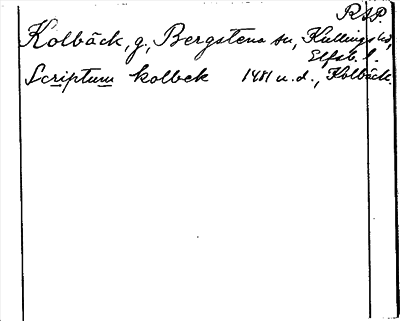 RAP.
Kolbäck, g., Bergstena sn, Kullings hd,
Elfsb. l.
Scriptum kolbek 1481 u.d., Kolbäck.